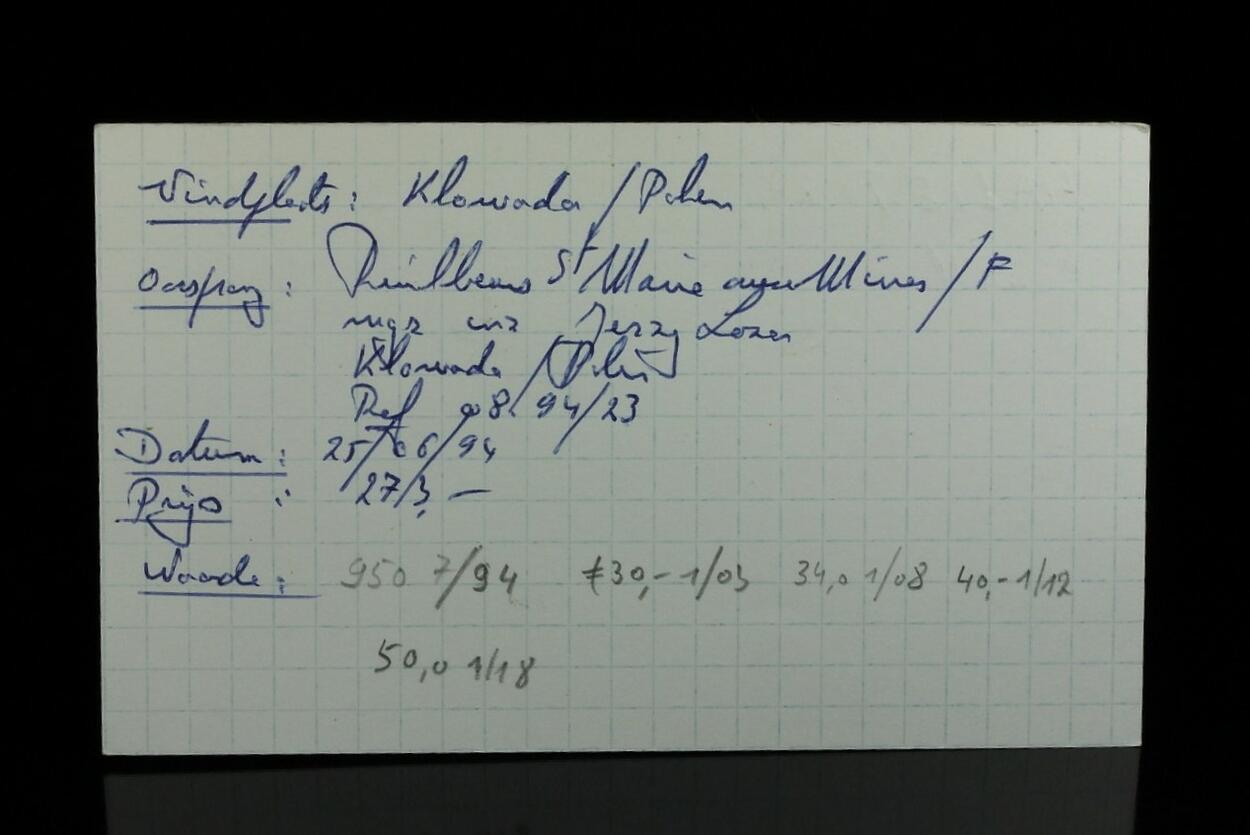 Vindplaats: Klowada / Polen
Oorsprong: Ruilbeurs St Marie aux Mines / F
mgr inz Jerzy
Klowada / Polen
Ref 08/94/23
Datum: 25/06/94
Prijs: 273,—
Waarde: 950 7/94 €30,- 1/03 34,0 1/08 40,- 1/12
50,0 1/18